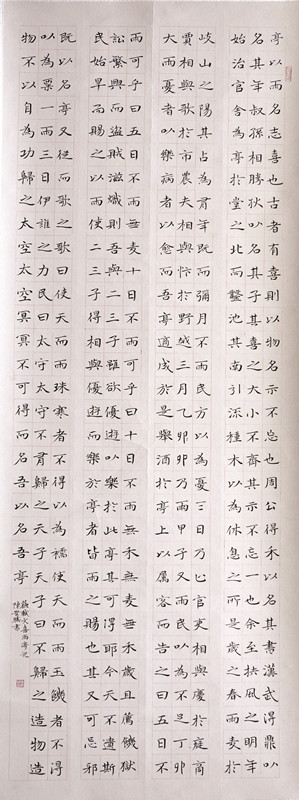 亭以雨名志喜也古者有喜則以物名示不忘也周公得禾以名其書漢武得鼎以
名其年叔孫相勝狄以名其子其喜之大小不齊其示不忘一余至扶風之明年
始治官舍為亭於堂之北而鑿池其南引流種木以為休息之所是歲之春雨麥於
岐山之陽其占為有年既而彌月不雨民方以為憂三日乃已官吏相與慶於庭商
賈相與歌於市農夫相與忭於野三月乙卯乃雨甲子又雨民以為不足丁卯
大雨憂者以樂病者以愈而吾亭適成於是舉酒於亭上以屬客而告之曰五日不
雨可乎曰五日不雨無麥十日不雨可乎曰十日不雨無禾無麥無禾歲且薦饑獄
訟繁興而盜賊滋熾則吾與二三子雖欲優遊以樂於此亭其可得耶今天不遺斯
民始旱而賜之以雨使二三子得相與優遊而樂於亭者皆雨之賜也其又可忘邪
既以名亭又從而歌之歌曰使天而雨珠寒者不得以為襦使天而雨玉饑者不得
以為粟一雨三日伊誰之力民曰太守太守不有歸之天子天子曰不歸之造物造
物不以自為功歸之太空太空冥冥不可得而名吾以名吾亭
蘇軾文喜雨亭記